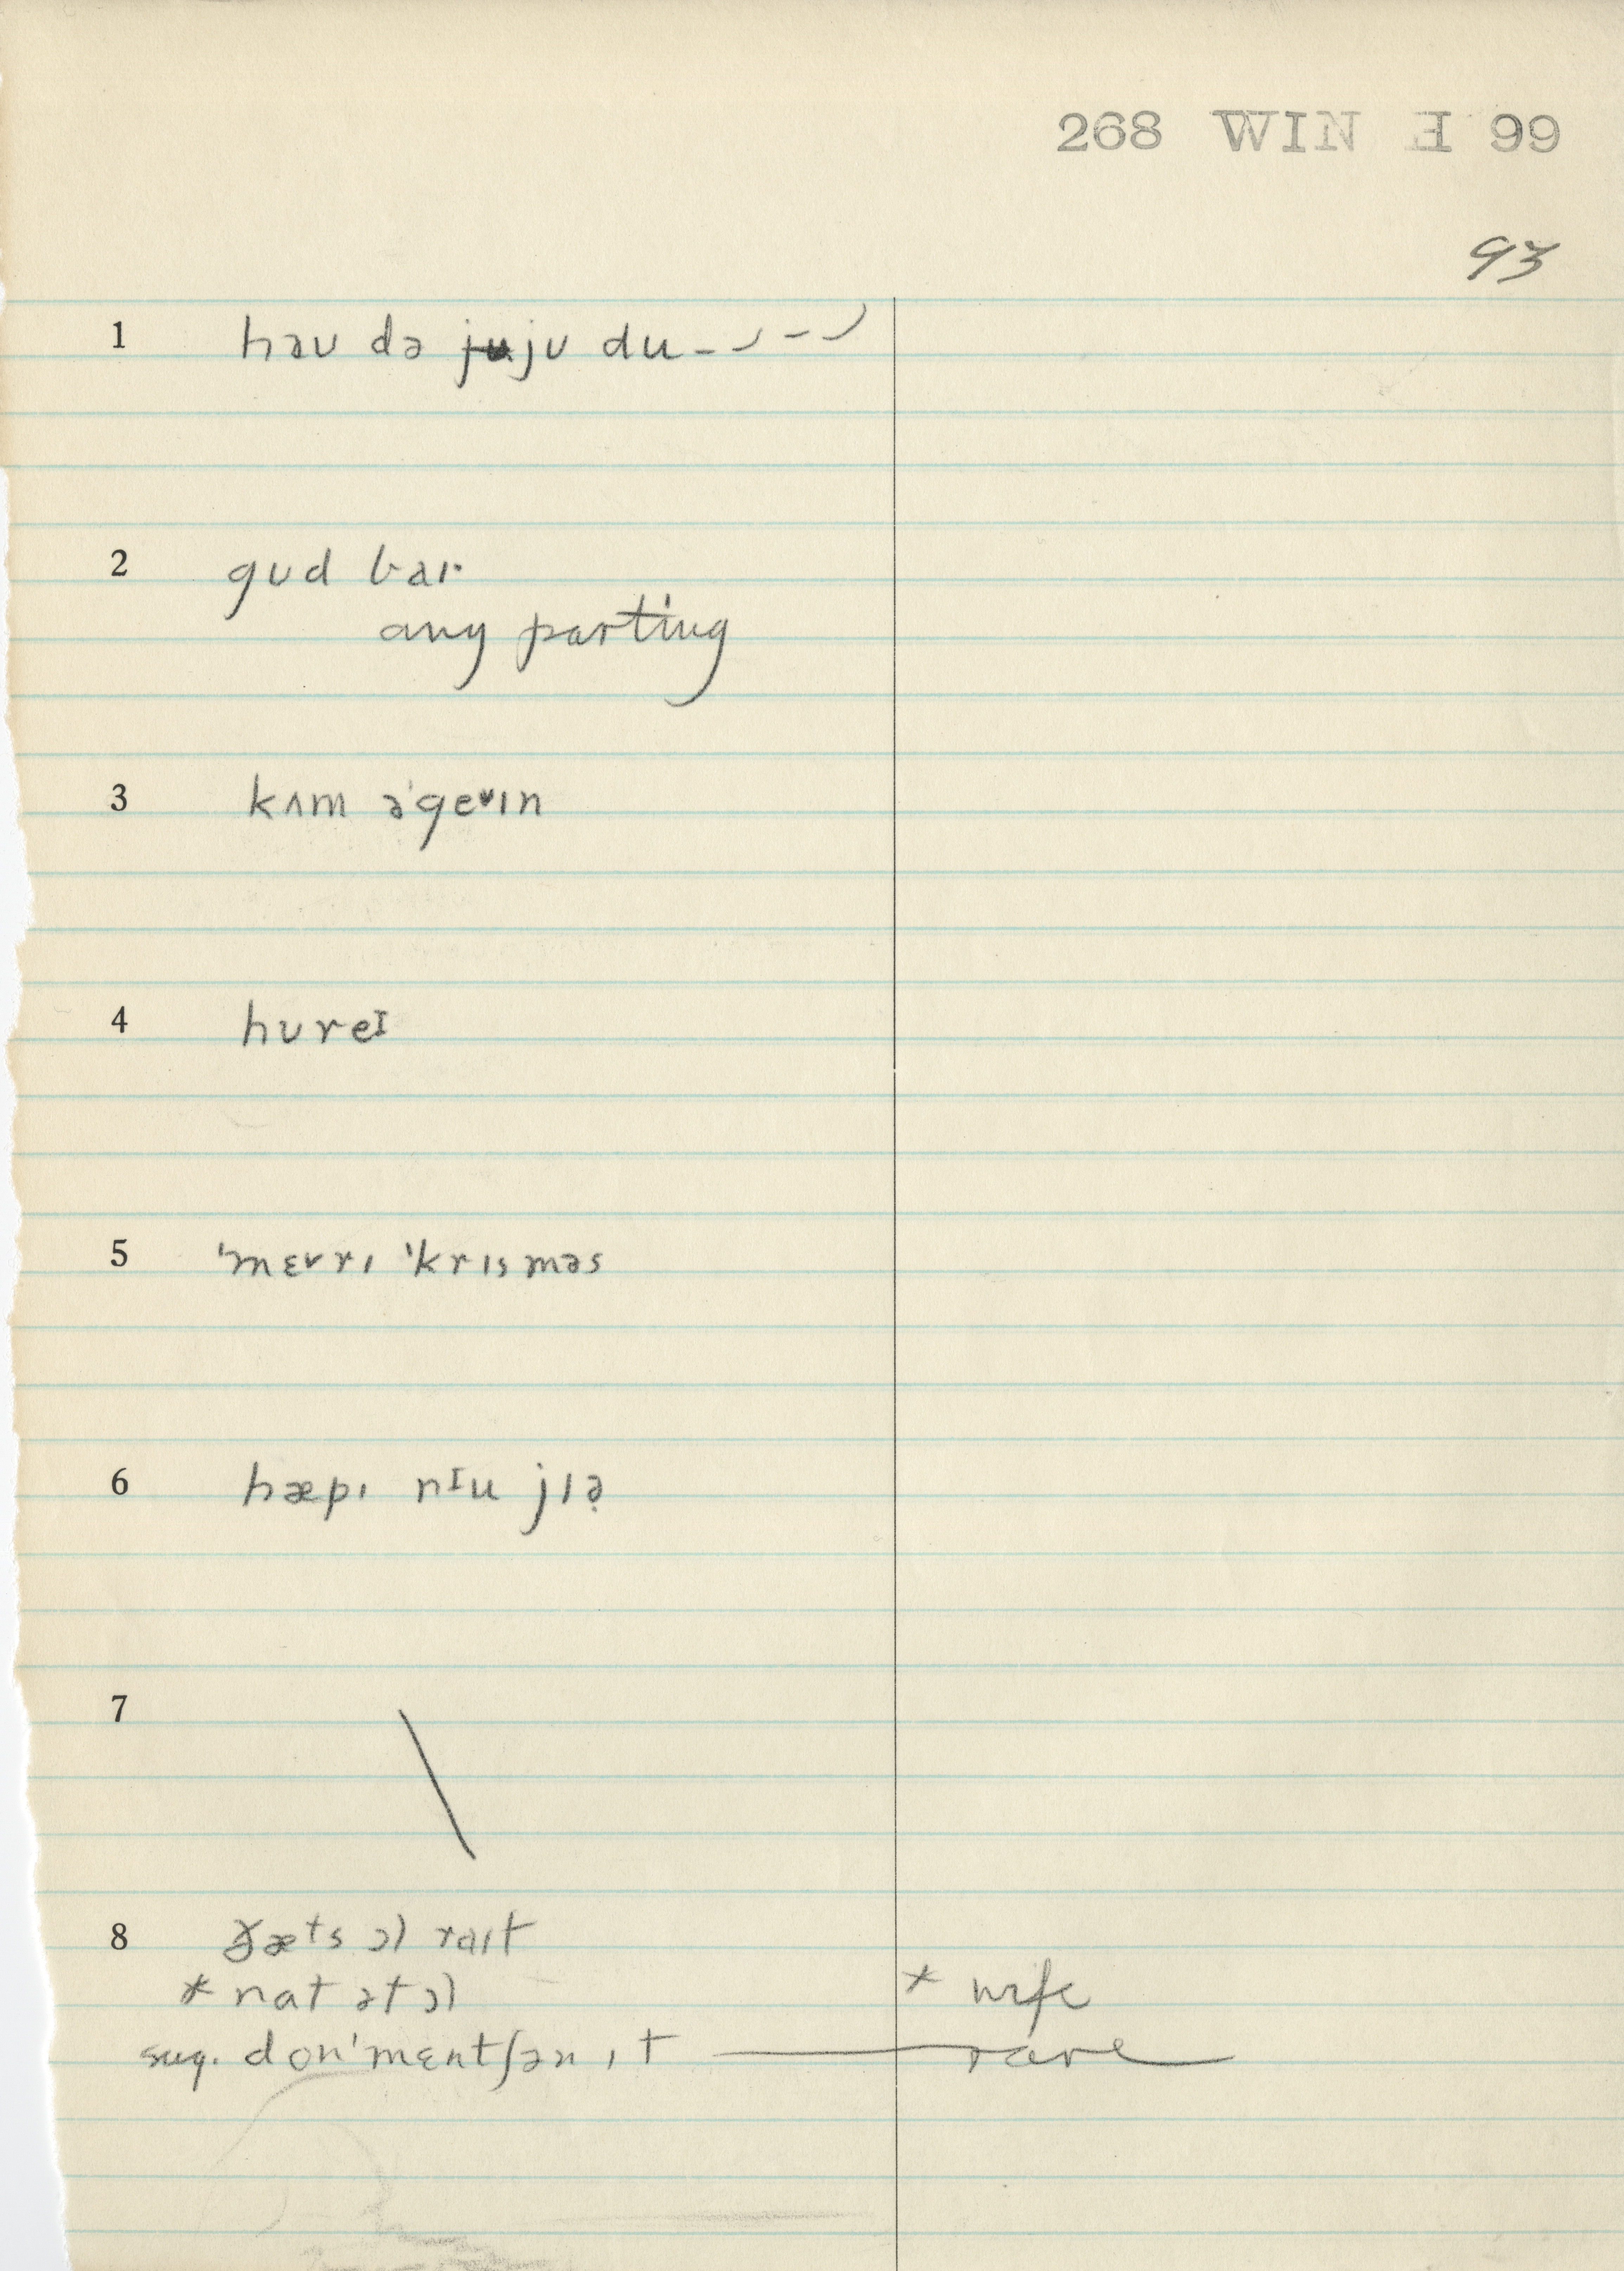 268 WIN E 99
93
1 həʊ də ju jʊ du
2 gʊd baɪ
any parting
3 kʌm ə'geˇɪn
4 hʊreɪ
5 'mɛˇrɪ 'krɪsməs
6 hæpɪ nɪu jɪə̣
7
8 ðæts ɔl raɪt
* nat ət ɔl * wife
sug. don'mɛntʃən ɪt rare